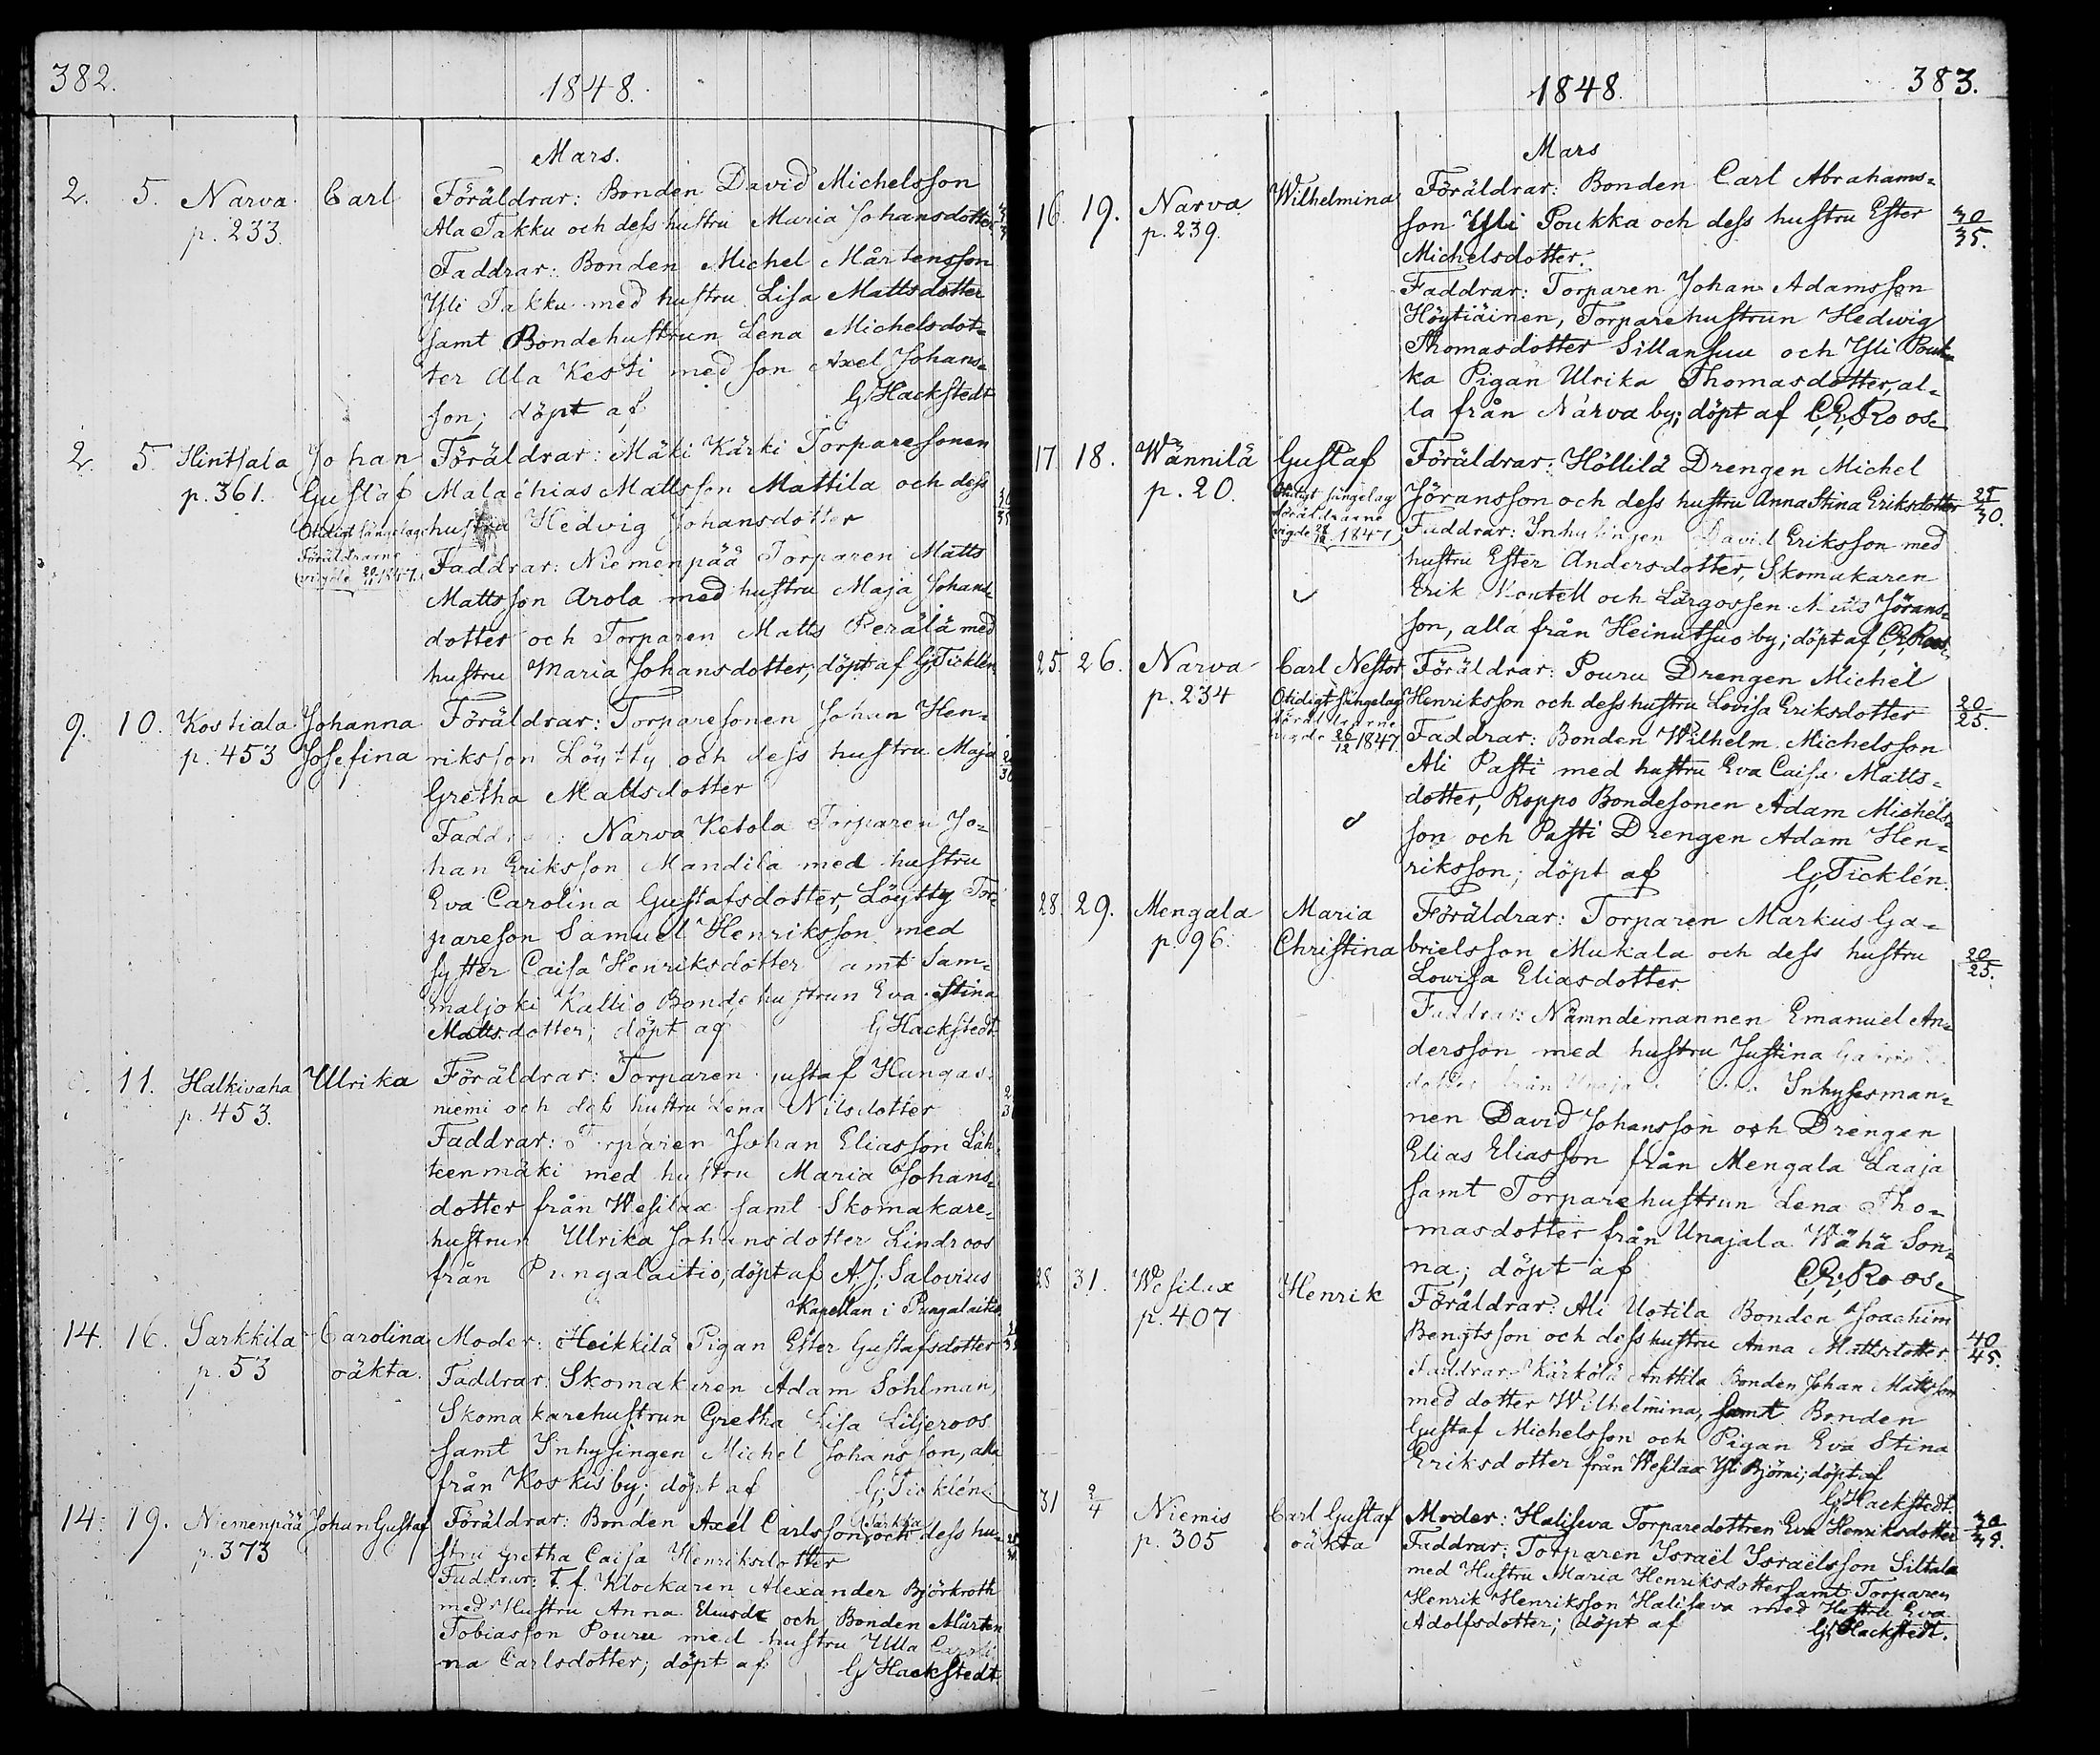 382.
1848.
Mars.
2. 5. Narva p. 233. Carl
Föräldrar: Bonden David Michelsson
Ala Takku och dess hustru Maria Johansdotter
Faddrar: Bonden Michel Mårtensson
Yli Takku med hustru Lisa Mattsdotter
samt Bondehustrun Lena Michelsdot=
ter Ala Kesti med son Axel Johans=
son; döpt af G Hackstedt
2. 5. Hintsala p. 361. Johan Gustaf
Otidigt sängelag
Föräldrarne
vigde 1847.
Föräldrar: Mäki Kärki Torparesonen
Malachias Mattsson Mattila och dess
hustru Hedvig Johansdotter
Faddrar: Niemenpää Torparen Matts
Mattsson Arola med hustru Maja Johans
dotter och Torparen Matts Perälä med
hustru Maria Johansdotter; döpt af G; Ticklén
9. 10. Kostiala p. 453 Johanna Josefina
Föräldrar: Torparesonen Johan Hen=
riksson Löytty och dess hustru Maja
Gretha Mattsdotter
Faddrar: Narva Ketola Torparen Jo=
han Eriksson Mandila med hustru
Eva Carolina Gustafsdotter, Löytty Tor=
pareson Samuel Henriksson med
syster Caisa Henriksdotter samt Sam=
maljoki Kallio Bondehustrun Eva Stina
Mattsdotter; döpt af G Hackstedt
11. Halkivaha p. 453. Ulrika
Föräldrar: Torparen Gustaf Hungas=
niemi och dess hustru Lena Nilsdotter
Faddrar: Torparen Johan Eliasson Läh=
teenmäki med hustru Maria Johans=
dotter från Wesilax samt Skomakare=
hustrun Ulrika Johansdotter Lindroos
från Pungalaitio; döpt af A. J; Salovius
Kapellan i Pungalaitio
14. 16. Sarkkila p. 53 Carolina oäkta.
Moder: Heikkilä Pigan Ester Gustafsdotter
Faddrar: Skomakaren Adam Sohlman,
Skomakarehustrun Gretha Lisa Liljeroos
samt Inhysingen Michel Johansson, alla
från Koskis by; döpt af G; Ticklén
14. 19. Niemenpää p. 373 Johan Gustaf
Föräldrar: Bonden Axel Carlsson och dess hu=
stru Gretha Caisa Henriksdotter
Faddrar: T. f. Klockaren Alexander Björkroth
med Hustru Anna och Bonden Mårten
Tobiasson Pouru med hustru Ulla Caroli
na Carlsdotter; döpt af G Hackstedt.
1848.
383.
Mars
16. 19. Narva p. 239. Wilhelmina
Föräldrar: Bonden Carl Abrahams=
son Yli Poukka och dess hustru Ester 30/35.
Michelsdotter.
Faddrar: Torparen Johan Adamsson
Höytiäinen, Torparehustrun Hedwig
Thomasdotter Sillansuu och Yli Pouk=
ka Pigan Ulrika Thomasdotter, al=
la från Narva by; döpt af C; R; Roos.
17 18. Wännilä p. 20. Gustaf
Otidigt sängelag
Föräldrarne
vigde 1847
Föräldrar: Höllilä Drengen Michel
Jöransson och dess hustru Anna Stina Eriksdotter 25/30.
Faddrar: Inhysingen David Eriksson med
hustru Ester Andersdotter, Skomakaren
Erik och Lärgossen Jörans=
son, alla från Heinutsuo by; döpt af C; R; Roos.
25. 26. Narva p. 234 Carl Nestor
Otidigt sängelag
Föräldrarne
vigde 26/12 1847
Föräldrar: Pouru Drengen Michel
Henriksson och dess hustru Lovisa Eriksdotter 20/25.
Faddrar: Bonden Wilhelm Michelsson
Ali Pasti med hustru Eva Caisa Matts=
dotter, Roppo Bondesonen Adam Michels=
son och Pasti Drengen Adam Hen=
riksson; döpt af G; Ticklén.
28. 29. Mengala p. 96. Maria Christina
Föräldrar: Torparen Markus Ga=
brielsson Mukala och dess hustru 20/25.
Lowisa Eliasdotter
Faddrar: Nämndemannen Emanuel An=
dersson med hustru Justina
Inhysesman=
nen David Johansson och Drengen
Elias Eliasson från Mengala Laaja
samt Torparehustrun Lena Tho=
masdotter från Unajala Wähä Son=
na; döpt af C; R; Roos.
28 31. Wesilax p. 407 Henrik
Föräldrar: Ali Uotila Bonden Joachim
Bengtsson och dess hustru Anna Mattsdotter 40/45.
Faddrar: Kärkölä Anttila Bonden Johan Mattsson
med dotter Wilhelmina, samt Bonden
Gustaf Michelsson och Pigan Eva Stina
Eriksdotter från Wesilax Yli Björni; döpt af
G; Hackstedt
31 2/4 Niemis p. 305 Carl Gustaf oäkta
Moder: Haliseva Torparedottren Eva Henriksdotter
Faddrar: Torparen Israël Israelsson Siltala
med Hustru Maria Henriksdotter samt Torparen
Henrik Henriksson Haliseva med Hustru Eva
Adolfsdotter; döpt af G; Hackstedt.